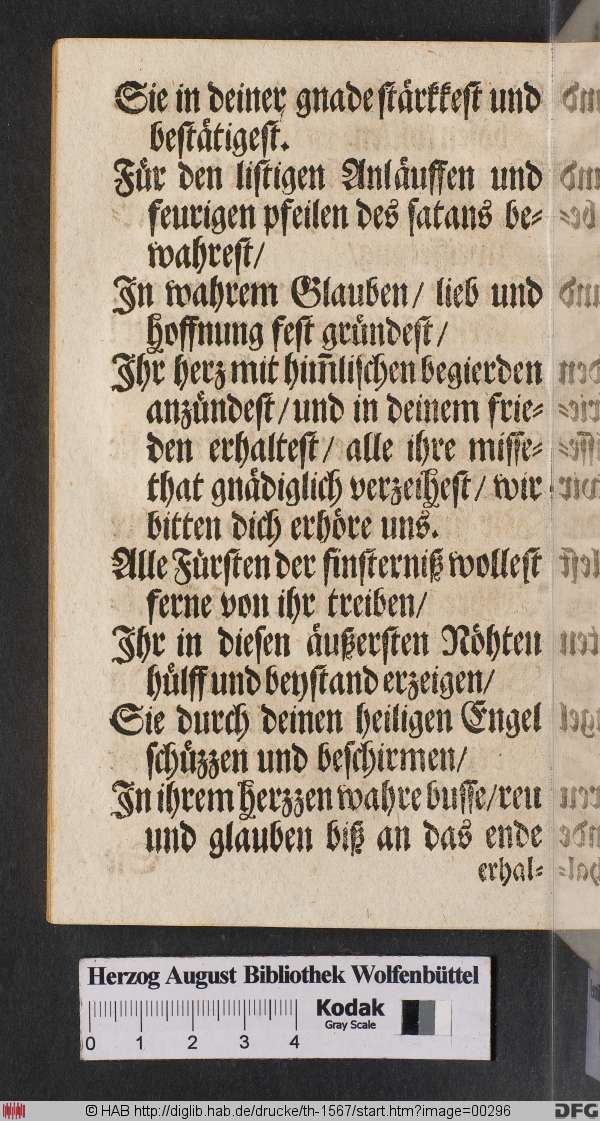 Sie in deiner gnade stärkkest und
bestätigest.
Für den listigen Anläuffen und
feurigen pfeilen des satans be-
wahrest/
In wahrem Glauben/ lieb und
hoffnung fest gründest/
Ihr herz mit him̃lischen begierden
anzündest/ und in deinem frie-
den erhaltest/ alle ihre misse-
that gnädiglich verzeihest/ wir
bitten dich erhöre uns.
Alle Fürsten der finsterniß wollest
ferne von ihr treiben/
Ihr in diesen äußersten Nöhten
hülff und beystand erzeigen/
Sie durch deinen heiligen Engel
schüzzen und beschirmen/
In ihrem herzzen wahre busse/ reu
und glauben biß an das ende
erhal-
Herzog August Bibliothek Wolfenbüttel
Kodak
Gray Scale
0 1 2 3 4
© HAB http://diglib.hab.de/drucke/th-1567/start.htm?image=00296
DFG